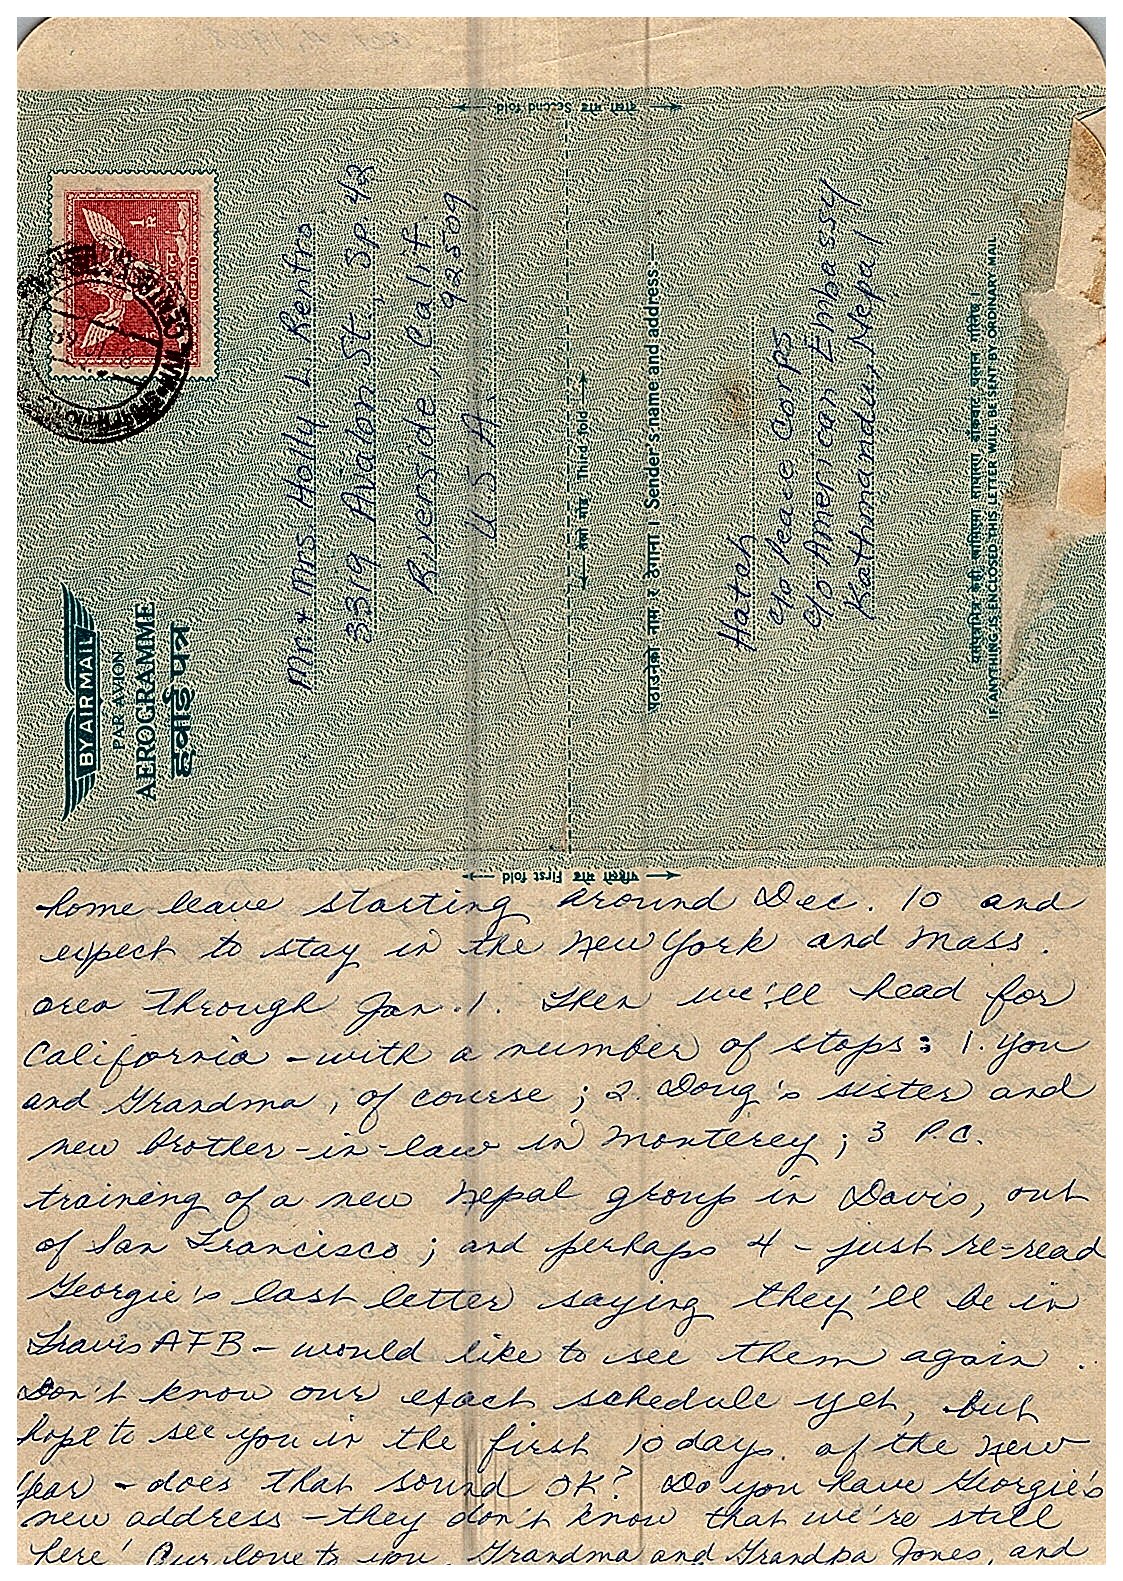 दोस्रो मोड Second fold
1
R
NEPAL
BY AIR MAIL
PAR AVION
AEROGRAMME
हवाई पत्र
Mr. & Mrs. Holly L. Renfro
3319 Avalon St. Sp. 42
Riverside, Calif.
92509
U.S.A.
तेस्रो मोड Third fold
पठाउनेको नाम र ठेगाना । Sender's name and address:-
Hatch
c/o Peace Corps
c/o American Embassy
Kathmandu, Nepal
IF ANYTHING IS ENCLOSED THIS LETTER WILL BE SENT BY ORDINARY MAIL
पहिलो मोड First fold
home leave starting around Dec. 10 and
expect to stay in the New York and Mass.
area through Jan. 1. Then we'll head for
California - with a number of stops: 1. you
and Grandma, of course; 2. Doug's sister and
new brother-in-law in Monterey; 3 P.C.
training of a new Nepal group in Davis, out
of San Francisco; and perhaps 4 - just re-read
Georgie's last letter saying they'll be in
Travis AFB - would like to see them again.
Don't know our exact schedule yet, but
hope to see you in the first 10 days of the New
Year - does that sound OK? Do you have Georgie's
new address - they don't know that we're still
here! Our love to you, Grandma and Grandpa Jones, and